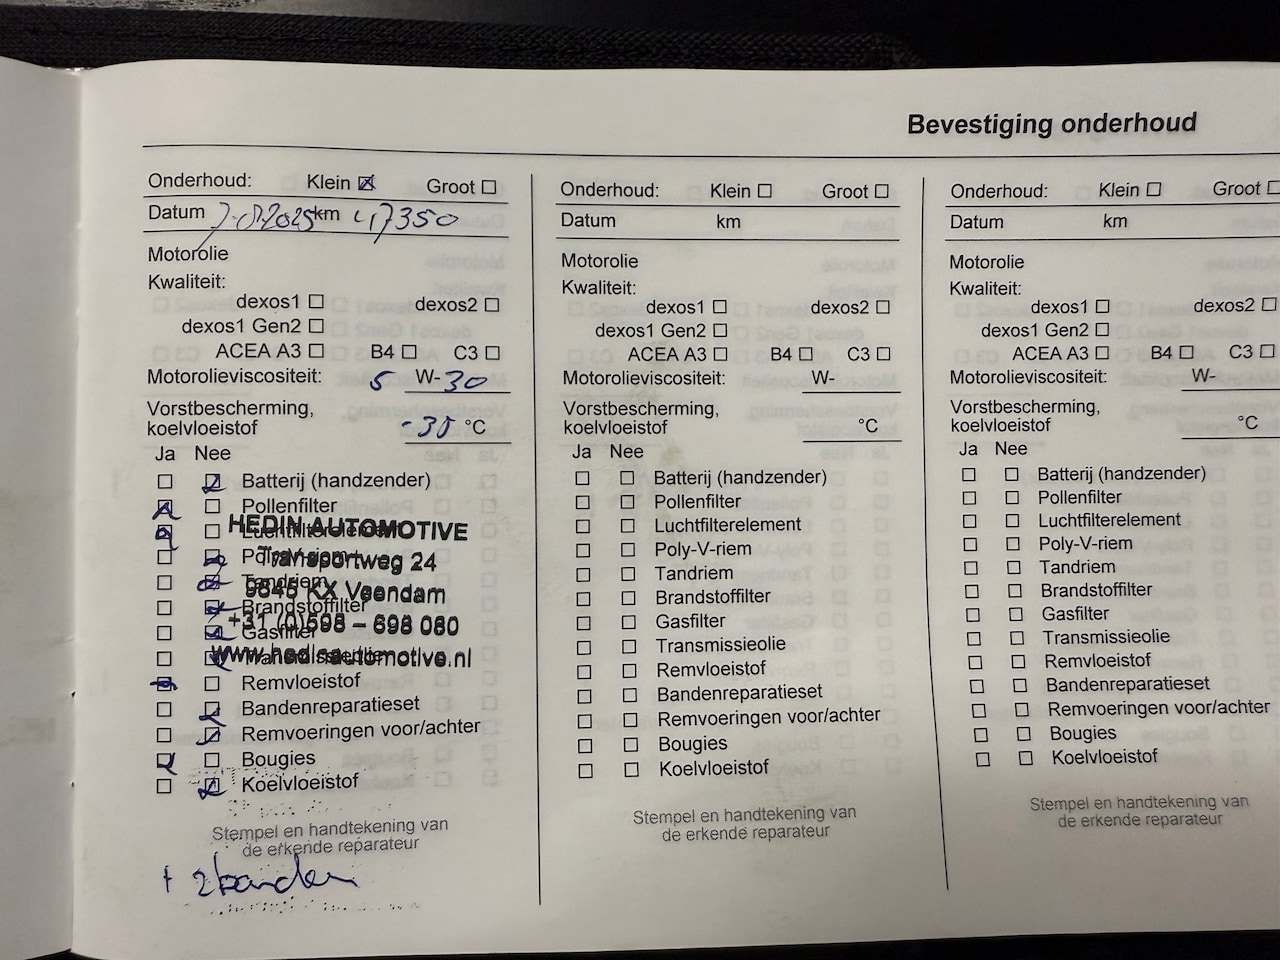 Bevestiging onderhoud
Onderhoud: Klein ☒ Groot ☐
Datum km 47350
Motorolie
Kwaliteit:
dexos1 ☐ dexos2 ☐
dexos1 Gen2 ☐
ACEA A3 ☐ B4 ☐ C3 ☐
Motorolieviscositeit: 5 W-30
Vorstbescherming,
koelvloeistof °C
Ja Nee
Batterij (handzender)
Pollenfilter
Luchtfilterelement
Poly-V-riem
Tandriem
Brandstoffilter
Gasfilter
Transmissieolie
Remvloeistof
Bandenreparatieset
Remvoeringen voor/achter
Bougies
Koelvloeistof
HEDIN AUTOMOTIVE
Transportweg 24
9645 KX Veendam
+31 (0)598 – 698 060
www.hedinautomotive.nl
Stempel en handtekening van
de erkende reparateur
+ 2 banden
Onderhoud: Klein ☐ Groot ☐
Datum km
Motorolie
Kwaliteit:
dexos1 ☐ dexos2 ☐
dexos1 Gen2 ☐
ACEA A3 ☐ B4 ☐ C3 ☐
Motorolieviscositeit: W-
Vorstbescherming,
koelvloeistof °C
Ja Nee
☐ ☐ Batterij (handzender)
☐ ☐ Pollenfilter
☐ ☐ Luchtfilterelement
☐ ☐ Poly-V-riem
☐ ☐ Tandriem
☐ ☐ Brandstoffilter
☐ ☐ Gasfilter
☐ ☐ Transmissieolie
☐ ☐ Remvloeistof
☐ ☐ Bandenreparatieset
☐ ☐ Remvoeringen voor/achter
☐ ☐ Bougies
☐ ☐ Koelvloeistof
Stempel en handtekening van
de erkende reparateur
Onderhoud: Klein ☐ Groot ☐
Datum km
Motorolie
Kwaliteit:
dexos1 ☐ dexos2 ☐
dexos1 Gen2 ☐
ACEA A3 ☐ B4 ☐ C3 ☐
Motorolieviscositeit: W-
Vorstbescherming,
koelvloeistof °C
Ja Nee
☐ ☐ Batterij (handzender)
☐ ☐ Pollenfilter
☐ ☐ Luchtfilterelement
☐ ☐ Poly-V-riem
☐ ☐ Tandriem
☐ ☐ Brandstoffilter
☐ ☐ Gasfilter
☐ ☐ Transmissieolie
☐ ☐ Remvloeistof
☐ ☐ Bandenreparatieset
☐ ☐ Remvoeringen voor/achter
☐ ☐ Bougies
☐ ☐ Koelvloeistof
Stempel en handtekening van
de erkende reparateur